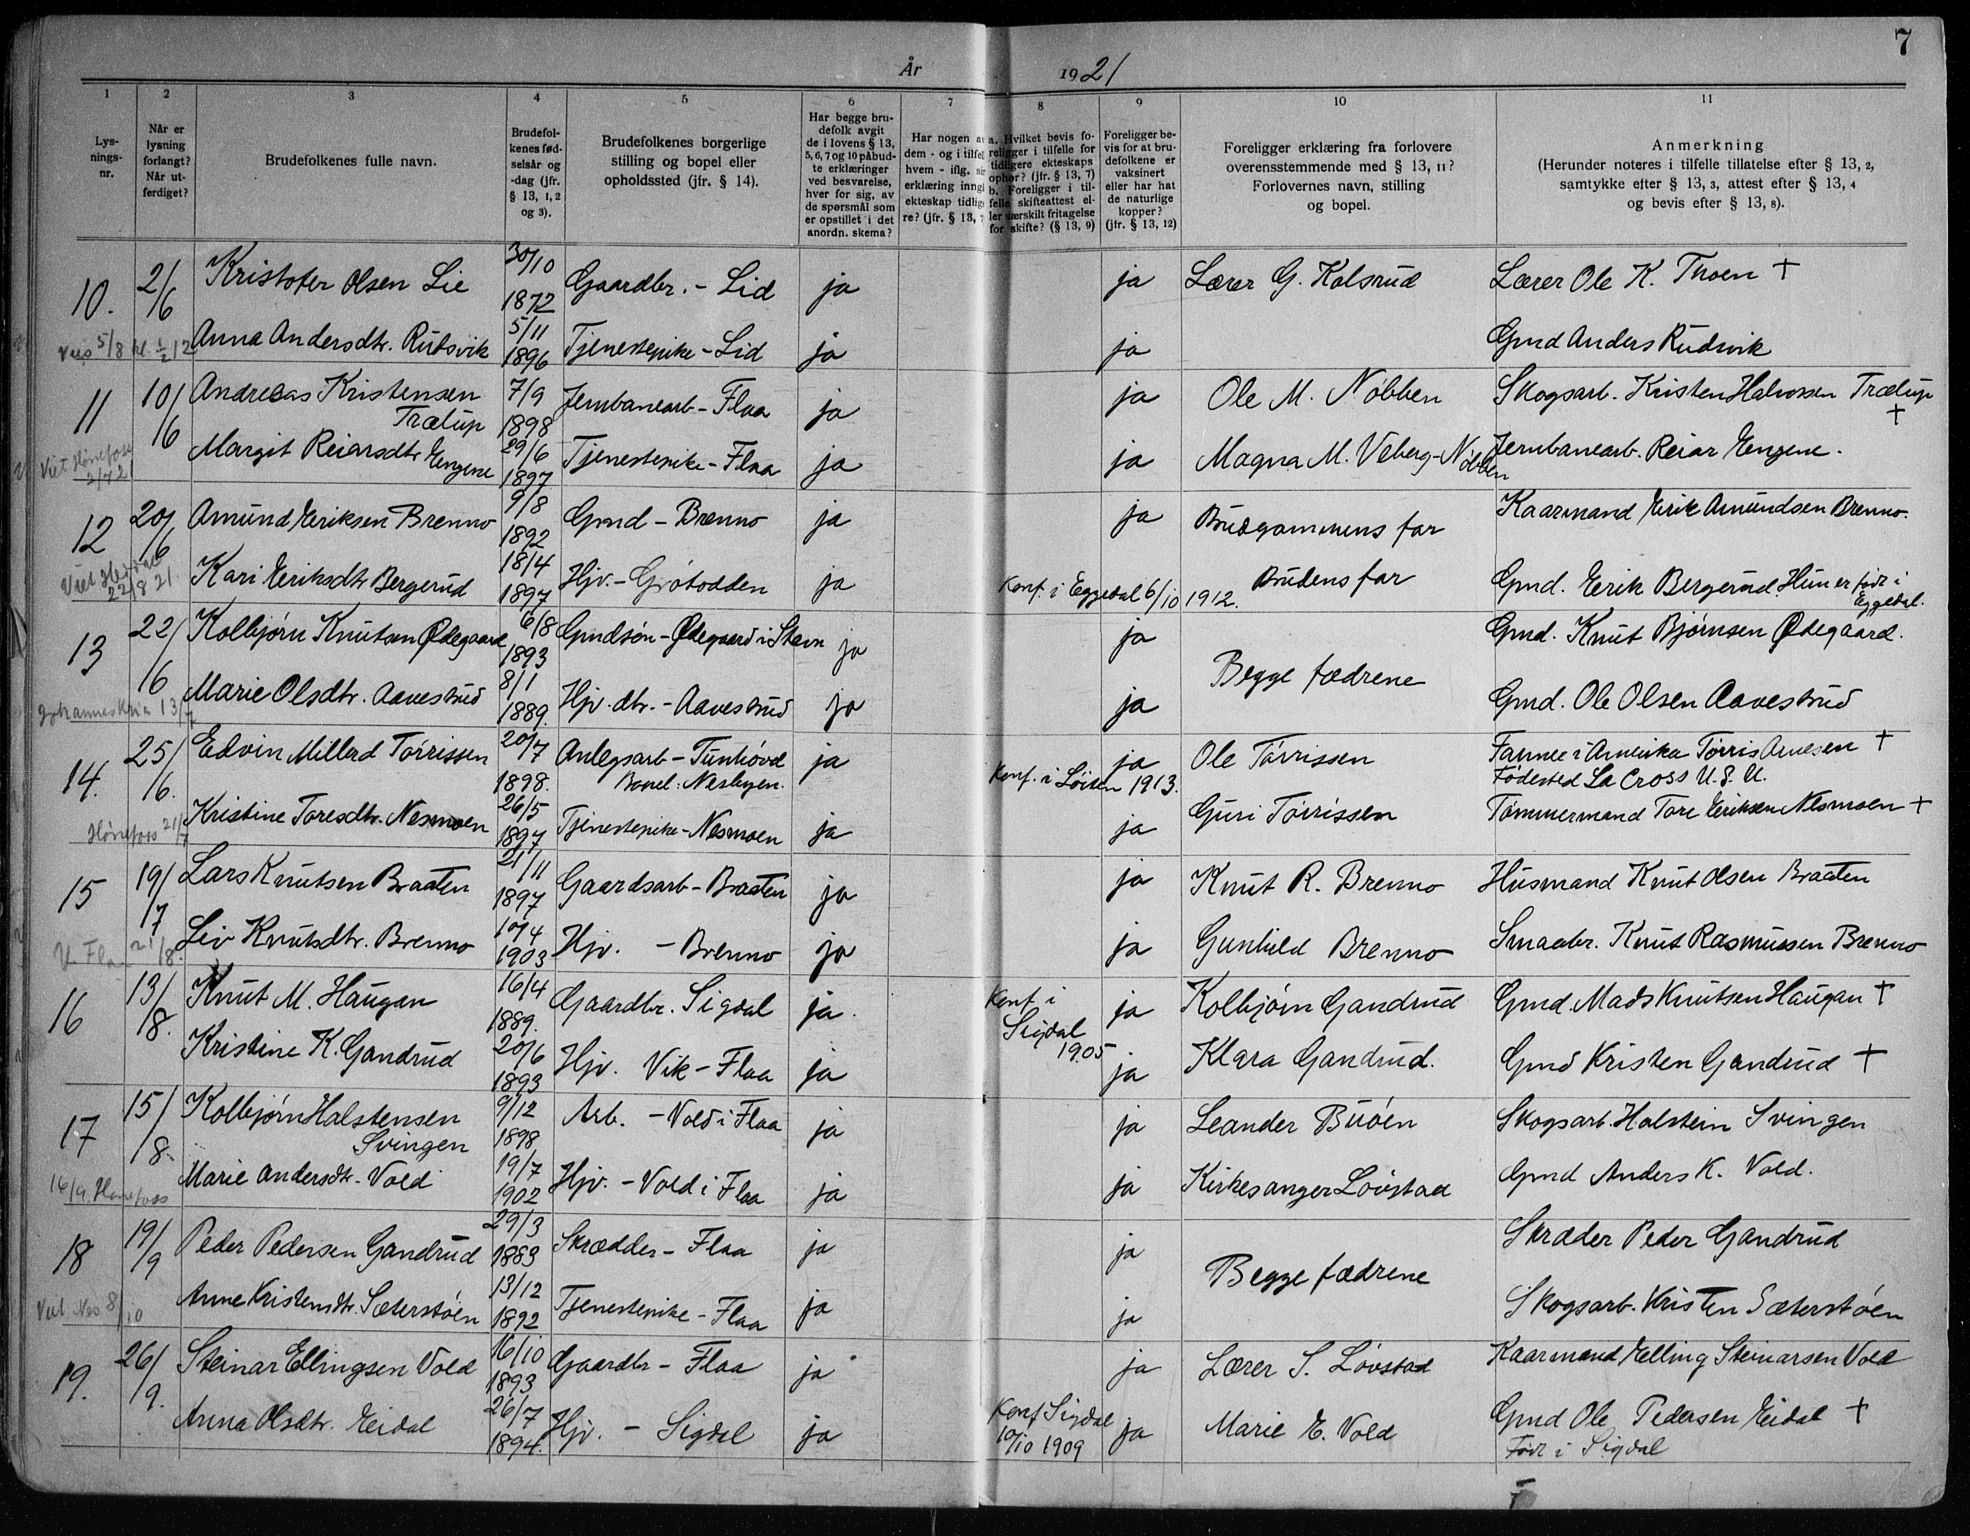 7
År 1921
1 2 3 4 5 6 7 8 9 10 11
Lys-
nings-
nr.
Når er
lysning
forlangt?
Når ut-
ferdiget?
Brudefolkenes fulle navn.
Brudefol-
kenes fød-
selsår og
-dag (jfr.
§ 13, 1, 2
og 3).
Brudefolkenes borgerlige
stilling og bopel eller
opholdssted (jfr. § 14).
Har begge bru-
defolk avgit
de i lovens § 13,
5, 6, 7 og 10 påbud-
te erklæringer
ved besvarelse,
hver for sig, av
de spørsmål som
er opstillet i det
anordn. skema?
Har nogen av
dem - og i tilfel
hvem - iflg. si
erklæring inngå
ekteskap tidlige
re? (jfr. § 13, 7
a. Hvilket bevis fo-
religger i tilfelle for
tidligere ekteskaps
ophør? (jfr. § 13, 7)
b. Foreligger i til-
felle skifteattest el-
ler særskilt fritagelse
for skifte? (§ 13, 9)
Foreligger be-
vis for at bru-
defolkene er
vaksinert
eller har hat
de naturlige
kopper?
(jfr. § 13, 12)
Foreligger erklæring fra forlovere
overensstemmende med § 13, 11?
Forlovernes navn, stilling
og bopel.
Anmerkning
(Herunder noteres i tilfelle tillatelse efter § 13, 2,
samtykke efter § 13, 3, attest efter § 13, 4
og bevis efter § 13, 8).
10. 2/6 Kristofer Olsen Lie 30/10 1872 Gaardbr. - Lid ja ja Lærer G. Kolsrud Lærer Ole K. Thoen +
5/8 kl. 1/2 12 Anna Andersdtr. Rudsvik 5/11 1896 Tjenestepike - Lid ja ja Gmd Anders Rudsvik
11 10/6 Andreas Kristensen Trætup 7/9 1898 Jernbanearb - Flaa ja ja Ole M. Nøbben Skogsarb. Kristen Halvorsen Trætup +
Viet Hønefoss 2/7 21 Margit Reiarsdtr Engene 29/6 1897 Tjenestepike - Flaa ja ja Magna M. Veberg-Nøbben Jernbanearb. Reiar Engene.
12 20/6 Amund Eriksen Brenno 9/8 1892 Gmd - Brenno ja ja Brudgommens far Kaarmand Erik Amundsen Brenno.
Viet 22/8 21 Kari Eriksdtr Bergerud 18/4 1897 Hjv. - Grøtodden ja Konf. i Eggedal 6/10 1912. Brudens far Gmd. Erik Bergerud Hun er født i Eggedal.
13 22/6 Kolbjørn Knutsen Ødegaard 6/8 1893 Gmdsøn - Ødegaard i Stavn ja ja Begge fædrene Gmd. Knut Bjørnsen Ødegaard.
13/7 Marie Olsdtr. Aavestrud 8/1 1889. Hjv. dtr. - Aavestrud ja ja Gmd. Ole Olsen Aavestrud
14. 25/6. Edvin Millerd Tørrissen 20/7 1898. Anlegsarb - Tunhøvd Bopel: Nesbyen. ja Konf. i Løiten 1913. ja Ole Tørrissen Farmer i Amerika Tørris Arnesen + Fødested La Cross U.S.A.
Hønefoss 21/7 Kristine Toresdtr. Nesmoen 26/5 1897 Tjenestepike - Nesmoen ja ja Guri Tørrissen Tømmermand Tore Eriksen Nesmoen +
15 19/7 Lars Knutsen Braaten 21/11 1897 Gaardsarb - Braaten ja ja Knut R. Brenno Husmand Knut Olsen Braaten
V. Flaa 21/8. Liv Knutsdtr. Brenno 10/4 1903 Hjv. - Brenno ja ja Gunhild Brenno Smaabr. Knut Rasmussen Brenno
16 13/8. Knut M. Haugan 16/4 1889. Gaardbr. Sigdal ja. Konf. i Sigdal 1905 ja Kolbjørn Gandrud Gmd. Mads Knutsen Haugan +
Kristine K. Gandrud 20/6 1893 Hjv. Vik - Flaa ja ja Klara Gandrud. Gmd Kristen Gandrud +
17 15/8 Kolbjørn Halstensen Svingen 9/12 1898 Arb. - Vold i Flaa ja ja Leander Buøen Skogsarb. Halstein Svingen
16/9. Hønefoss Marie Andersdtr. Vold 19/7 1902 Hjv. - Vold i Flaa ja ja Kirkesanger Løvstad Gmd Anders K. Vold.
18 19/9 Peder Pedersen Gandrud 29/3 1883 Skrædder - Flaa ja ja Begge fædrene Skræder Peder Gandrud
Nes 8/10 Anne Kristensdtr. Sæterstøen 13/12 1892 Tjenestepike - Flaa ja ja Skogsarb. Kristen Sæterstøen
19. 26/9. Steinar Ellingsen Vold 16/10 1893 Gaardbr - Flaa ja ja Lærer S. Løvstad Kaarmand Elling Steinarsen Vold
Anna Olsdtr. Eidal 26/7 1894. Hjv. - Sigdal ja Konf. Sigdal 10/10 1909 ja Marie E. Vold Gmd Ole Pedersen Eidal +
Født i Sigdal